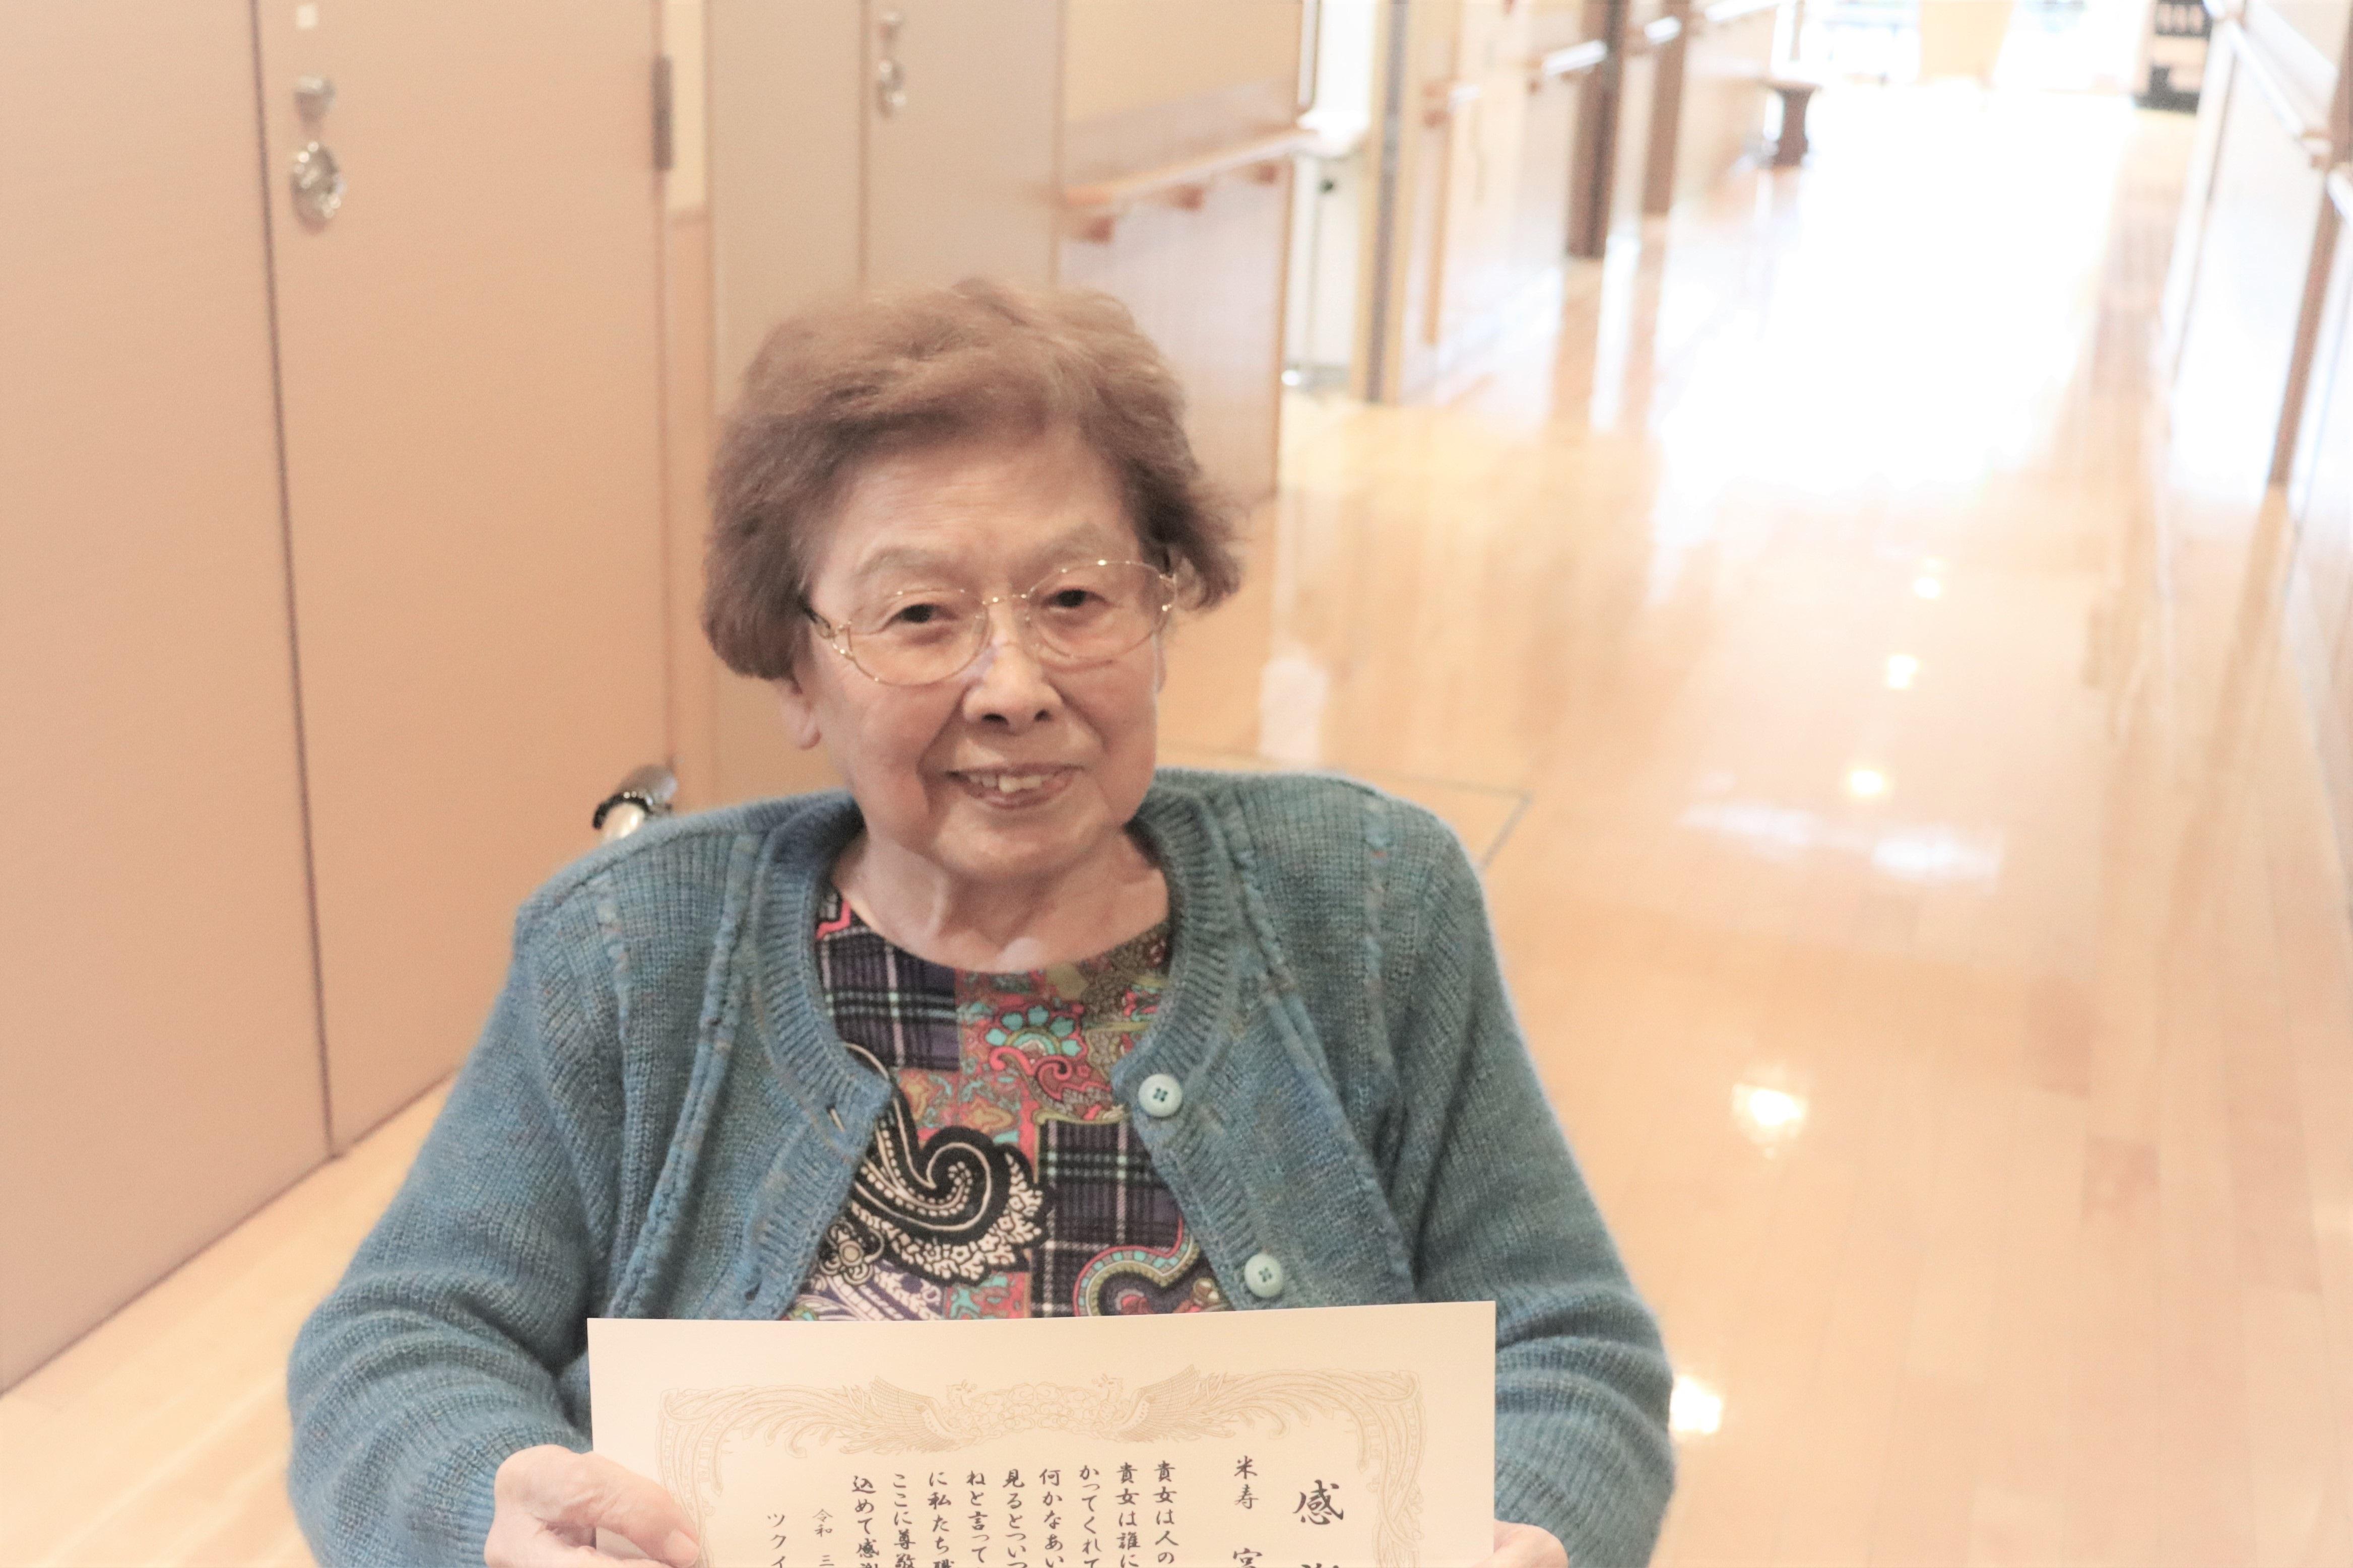 感
米寿 宮
貴女は人の
貴女は誰に
かってくれて
何かなあい
見るとついつ
ねと言って
に私たち職
ここに尊敬
込めて感謝
令和 三
ツクイ